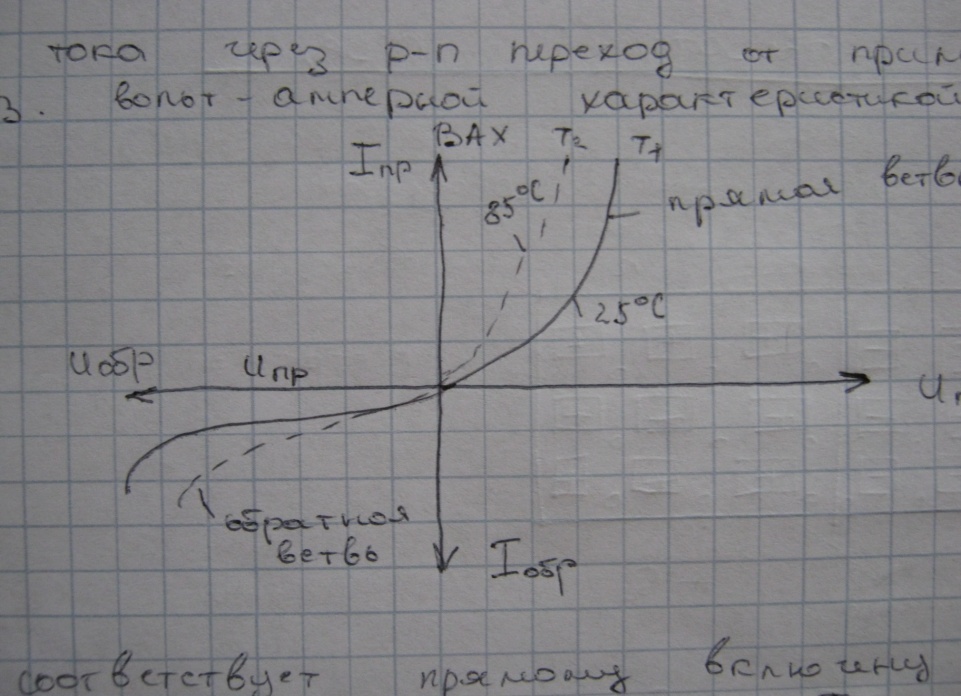 тока через p-n переход от прил
3. вольт-амперной характеристикой
ВАХ T₂ T₁
Iпр
85°C
прямая ветвь
25°C
Uобр Uпр
Uп
обратная
ветвь
Iобр
соответствует прямому включению